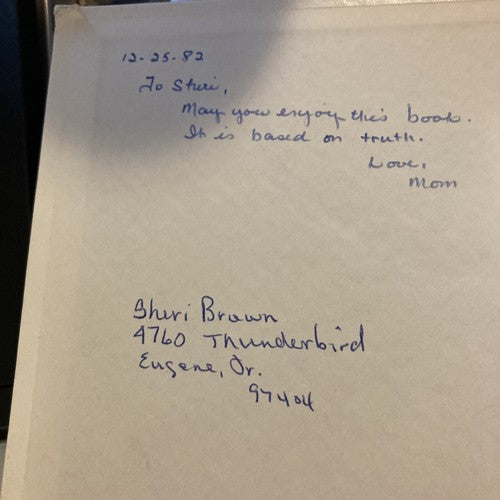 12-25-82
To Sheri,
May you enjoy this book.
It is based on truth.
Love,
Mom
Sheri Brown
4760 Thunderbird
Eugene, Or.
97404